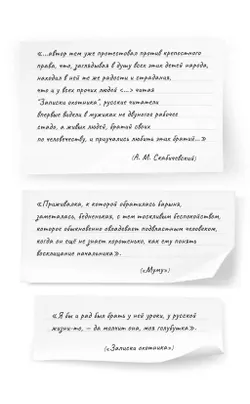 «...автор тем уже протестовал против крепостного
права, что, заглядывая в душу всех этих детей народа,
находил в ней те же радости и страдания,
что и у всех прочих людей <...> читая
"Записки охотника", русские читатели
впервые видели в мужиках не двуногое рабочее
стадо, а живых людей, братий своих
по человечеству, и приучались любить этих братий...»
(А. М. Скабичевский)
«Приживалка, к которой обратилась барыня,
заметалась, бедненькая, с тем тоскливым беспокойством,
которое обыкновенно овладевает подвластным человеком,
когда он ещё не знает хорошенько, как ему понять
восклицание начальника».
(«Муму»)
«Я бы и рад был брать у ней уроки, у русской
жизни-то, — да молчит она, моя голубушка».
(«Записки охотника»)